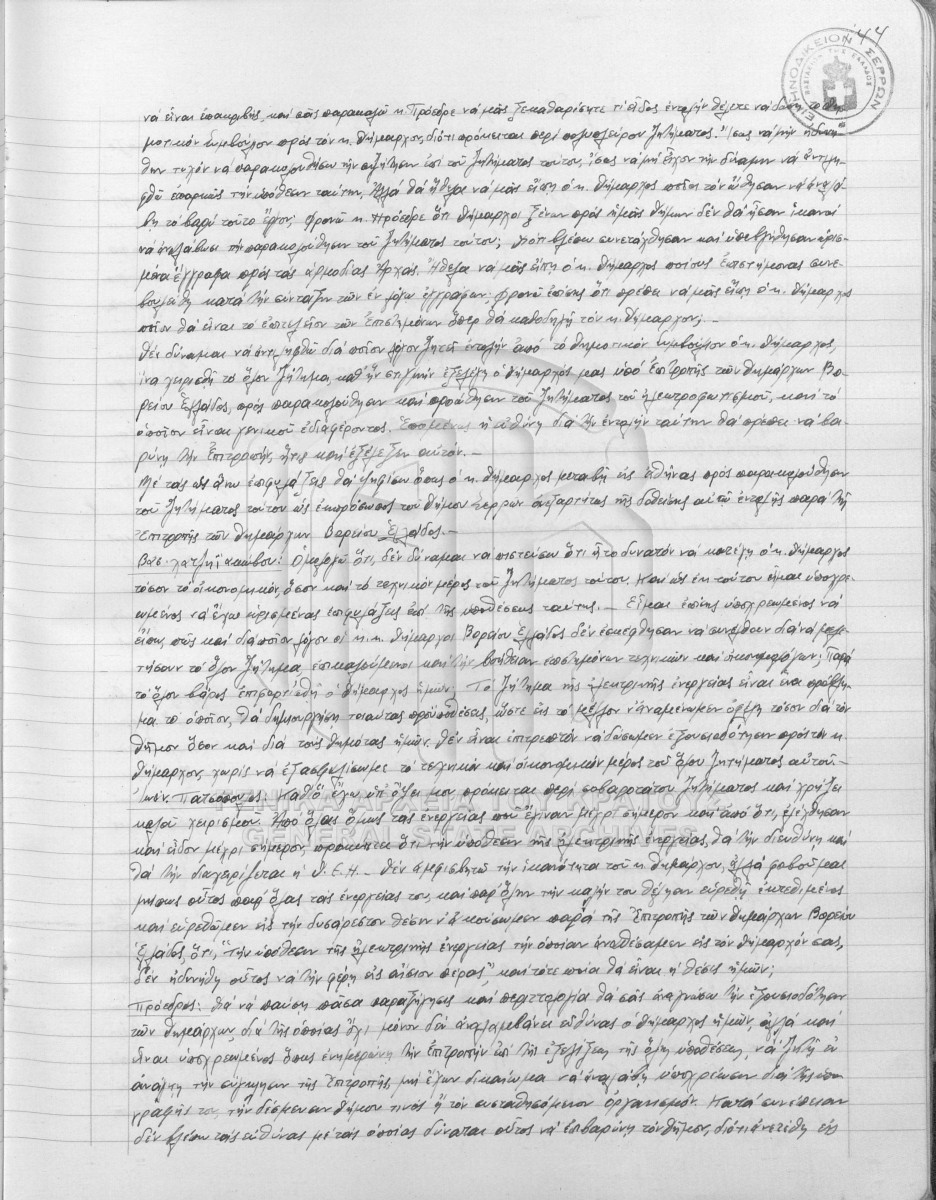 44
ΕΙΡΗΝΟΔΙΚΕΙΟΝ ΣΕΡΡΩΝ
ΒΑΣΙΛΕΙΟΝ ΤΗΣ ΕΛΛΑΔΟΣ
νά εἶναι ἐπακριβής, καί σᾶς παρακαλῶ κ. Πρόεδρε νά μᾶς ξεκαθαρίσητε τί εἶδος ἐντολήν θέλετε νά δώσῃ τό Δη-
μοτικόν Συμβούλιον πρός τόν κ. Δήμαρχον, διότι πρόκειται περί πολυπλεύρου ζητήματος. Ἴσως νά μήν ἠδυνή-
θην τυχόν νά παρακολουθήσω τήν συζήτησιν ἐπί τοῦ ζητήματος τούτου, ἴσως νά μή εἶχον τήν δύναμιν νά ἀντιλη-
φθῶ ἐπαρκῶς τήν ὑπόθεσιν ταύτην, ἀλλά θά ἤθελα νά μᾶς εἴπῃ ὁ κ. Δήμαρχος ποῖοι τόν ὤθησαν νά ἀναλά-
βῃ τό βαρύ τοῦτο ἔργον; Φρονῶ κ. Πρόεδρε ὅτι Δήμαρχοι ξένων πρός ἡμᾶς Δήμων δέν θά ἦσαν ἱκανοί
νά ἀναλάβωσι τήν παρακολούθησιν τοῦ ζητήματος τούτου; Διότι βλέπω συνετάχθησαν καί ὑπεβλήθησαν ὡρισ-
μένα ἔγγραφα πρός τάς ἁρμοδίας Ἀρχάς. Ἤθελα νά μᾶς εἴπῃ ὁ κ. Δήμαρχος ποίους ἐπιστήμονας συνε-
βουλεύθη κατά τήν σύνταξιν τῶν ἐν λόγῳ ἐγγράφων. Φρονῶ ἐπίσης ὅτι πρέπει νά μᾶς εἴπῃ ὁ κ. Δήμαρχος
ποῖον θά εἶναι τό ἐπιτελεῖον τῶν Ἐπιστημόνων ὅπερ θά καθοδηγῇ τόν κ. Δήμαρχον; –
Δέν δύναμαι νά ἀντιληφθῶ διά ποῖον λόγον ζητεῖ ἐντολήν ἀπό τό Δημοτικόν Συμβούλιον ὁ κ. Δήμαρχος,
ἵνα χειρισθῇ τό ὅλον ζήτημα, καθ' ἥν στιγμήν ἐξελέγη ὁ Δήμαρχός μας ὑπό Ἐπιτροπῆς τῶν Δημάρχων Βο-
ρείου Ἑλλάδος, πρός παρακολούθησιν καί προώθησιν τοῦ ζητήματος τοῦ ἠλεκτροφωτισμοῦ, καί τό
ὁποῖον εἶναι γενικοῦ ἐνδιαφέροντος. Ἑπομένως ἡ εὐθύνη διά τήν ἐντολήν ταύτην θά πρέπει νά βα-
ρύνῃ τήν Ἐπιτροπήν, ἥτις καί ἐξέλεξεν αὐτόν. –
Μέ τάς ὡς ἄνω ἐπιφυλάξεις θά ψηφίσω ὅπως ὁ κ. Δήμαρχος μεταβῇ εἰς Ἀθήνας πρός παρακολούθησιν
τοῦ ζητήματος τούτου ὡς ἐκπρόσωπος τοῦ Δήμου Σερρῶν ἀνεξαρτήτως τῆς δοθείσης αὐτῷ ἐντολῆς παρά τῆς
Ἐπιτροπῆς τῶν Δημάρχων Βορείου Ἑλλάδος. –
Βας. Χατζηϊακώβου: Ὁμολογῶ ὅτι, δέν δύναμαι νά πιστεύσω ὅτι ἦτο δυνατόν νά κατέχῃ ὁ κ. Δήμαρχος
τόσον τό οἰκονομικόν, ὅσον καί τό τεχνικόν μέρος τοῦ ζητήματος τούτου. Καί ὡς ἐκ τούτου εἶμαι ὑποχρε-
ωμένος νά ἔχω ὡρισμένας ἐπιφυλάξεις ἐπί τῆς ὑποθέσεως ταύτης. – Εἶμαι ἐπίσης ὑποχρεωμένος νά
εἴπω, πῶς καί διά ποῖον λόγον οἱ κ.κ. Δήμαρχοι Βορείου Ἑλλάδος δέν ἐσκέφθησαν νά συνέλθουν διά νά μελε-
τήσουν τό ὅλον ζήτημα ἐπικαλούμενοι καί τήν βοήθειαν ἐπιστημόνων τεχνικῶν καί οἰκονομολόγων; Παρά
τό ὅλον βάρος ἐπεφορτίσθη ὁ Δήμαρχος ἡμῶν; Τό ζήτημα τῆς ἠλεκτρικῆς ἐνεργείας εἶναι ἕνα πρόβλη-
μα τό ὁποῖον, θά δημιουργήσῃ τοιαύτας προϋποθέσεις, ὥστε εἰς τό μέλλον ν' ἀναμένωμεν ὀφέλη τόσον διά τόν
Δῆμον ὅσον καί διά τούς Δημότας ἡμῶν. Δέν εἶναι ἐπιτρεπτόν νά δώσωμεν ἐξουσιοδότησιν πρός τόν κ.
Δήμαρχον, χωρίς νά ἐξασφαλίσωμεν τό τεχνικόν καί οἰκονομικόν μέρος τοῦ ὅλου ζητήματος αὐτοῦ –
Ἰωάν. Πατσόπουλος: Καθ' ὅ ἔχω ὑπ' ὄψει μου πρόκειται περί σοβαρωτάτου ζητήματος καί χρῄζει
καλοῦ χειρισμοῦ. Ἀπό ὅλας ὅμως τάς ἐνεργείας πού ἔγιναν μέχρι σήμερον καί ἀπό ὅτι, ἐλέχθησαν
καί εἶδον μέχρι σήμερον, προκύπτει ὅτι τήν ὑπόθεσιν τῆς ἠλεκτρικῆς ἐνεργείας, θά τήν διευθύνῃ καί
θά τήν διαχειρίζεται ἡ Δ.Ε.Η. – Δέν ἀμφισβητῶ τήν ἱκανότητα τοῦ κ. Δημάρχου, ἀλλά φοβοῦμαι
μήπως οὗτος παρ' ὅλας τάς ἐνεργείας του, καί παρ' ὅλην τήν καλήν του θέλησιν εὑρεθῇ ἐκτεθειμένος
καί εὑρεθῶμεν εἰς τήν δυσάρεστον θέσιν ν' ἀκούσωμεν παρά τῆς Ἐπιτροπῆς τῶν Δημάρχων Βορείου
Ἑλλάδος, ὅτι, "τήν ὑπόθεσιν τῆς ἠλεκτρικῆς ἐνεργείας τήν ὁποίαν ἀναθέσαμεν εἰς τόν Δήμαρχόν σας,
δέν ἠδυνήθη οὗτος νά τήν φέρῃ εἰς αἴσιον πέρας", καί τότε ποία θά εἶναι ἡ θέσις ἡμῶν;
Πρόεδρος: Διά νά παύσῃ πᾶσα παρεξήγησις καί περιττολογία θά σᾶς ἀναγνώσω τήν ἐξουσιοδότησιν
τῶν Δημάρχων, διά τῆς ὁποίας ὄχι μόνον δέν ἀναλαμβάνει εὐθύνας ὁ Δήμαρχος ἡμῶν, ἀλλά καί
εἶναι ὑποχρεωμένος ὅπως ἐνημερώνῃ τήν Ἐπιτροπήν ἐπί τῆς ἐξελίξεως τῆς ὅλης ὑποθέσεως, νά ζητῇ ἐν
ἀνάγκῃ τήν σύγκλησιν τῆς Ἐπιτροπῆς, μή ἔχων δικαίωμα νά ἀναλάβῃ ὑποχρέωσιν διά τῆς ὑπο-
γραφῆς του, τήν δέσμευσιν Δήμου τινός ἤ τόν συσταθησόμενον ὀργανισμόν. Κατά συνέπειαν
δέν βλέπω τάς εὐθύνας μέ τάς ὁποίας δύναται οὗτος νά ἐπιβαρύνῃ τόν Δῆμον, διότι ἀνετέθη εἰς
ΓΕΝΙΚΑ ΑΡΧΕΙΑ ΤΟΥ ΚΡΑΤΟΥΣ
GENERAL STATE ARCHIVES